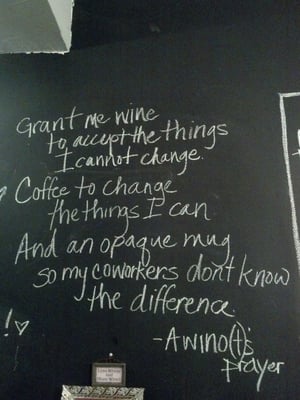 Grant me wine
to accept the things
I cannot change.
Coffee to change
the things I can
And an opaque mug
so my coworkers don't know
the difference.
-A wino(t)'s
prayer
!♡